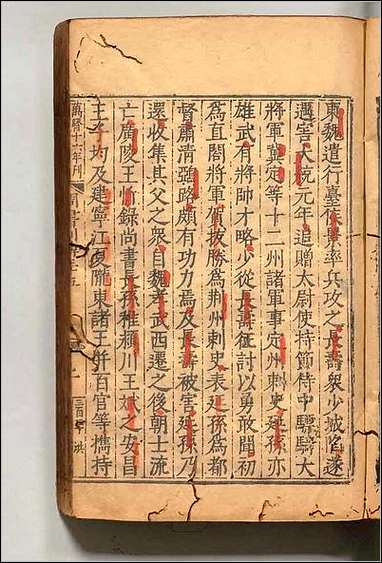 東魏遣行臺侯景率兵攻之長壽衆少城陷遂
遇害大統元年追贈太尉使持節侍中驃騎大
將軍冀定等十二州諸軍事定州刺史延孫亦
雄武有將帥才略少從長壽征討以勇敢聞初
為直閤將軍賀拔勝為荆州刺史表延孫為都
督肅清鵶路頗有功力焉及長壽被害延孫乃
還收集其父之衆自魏孝武西遷之後朝士流
亡廣陵王忻錄尚書長孫稚潁川王斌之安昌
王子均及建寧江夏隴東諸王併百官等擕持
萬曆十六年刊